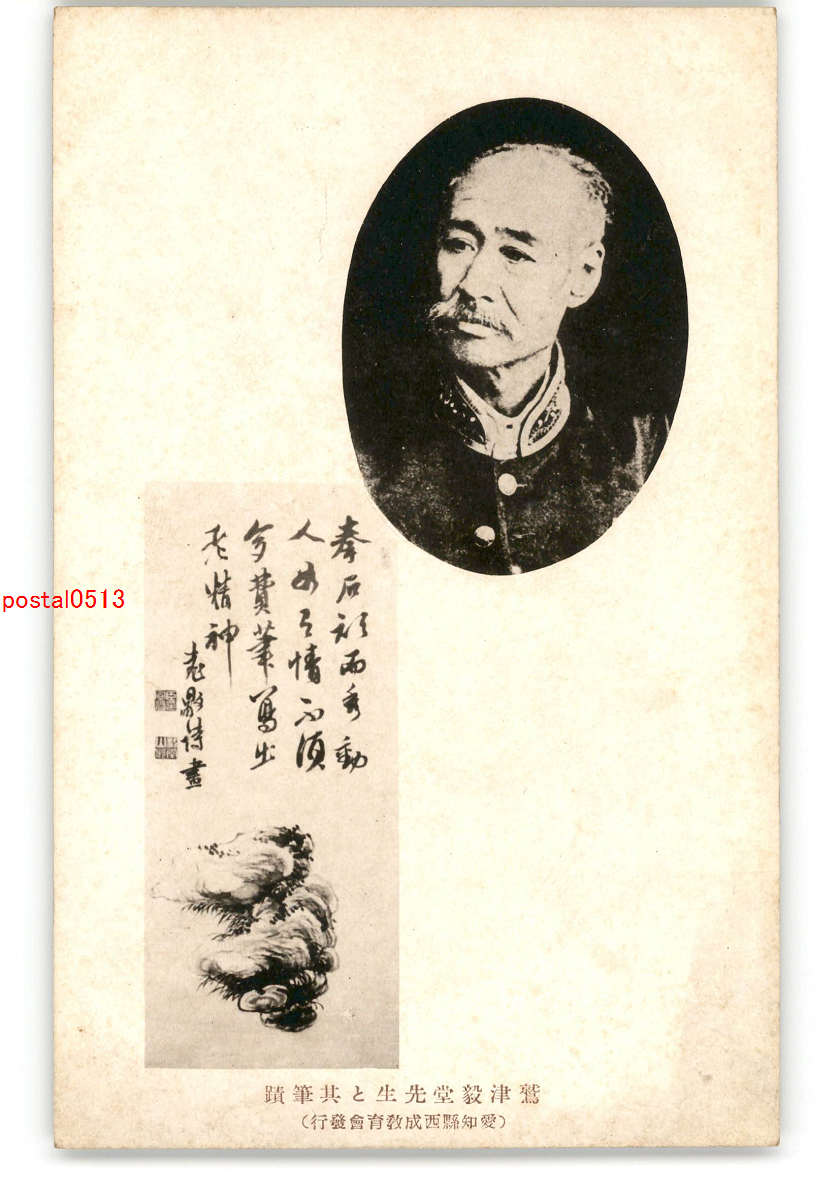 拳石韵而秀動
人如有情不須
多費筆寫出
老精神
毅堂
畫
postal0513
鷲津毅堂先生と其筆蹟
（愛知縣西成敎育會發行）